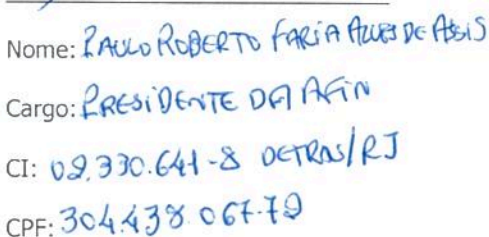 Nome: PAULO ROBERTO FARIA ALVES DE ASSIS
Cargo: PRESIDENTE DA AFIN
CI: 02.330.641-8 DETRAN/RJ
CPF: 304.438.067-72